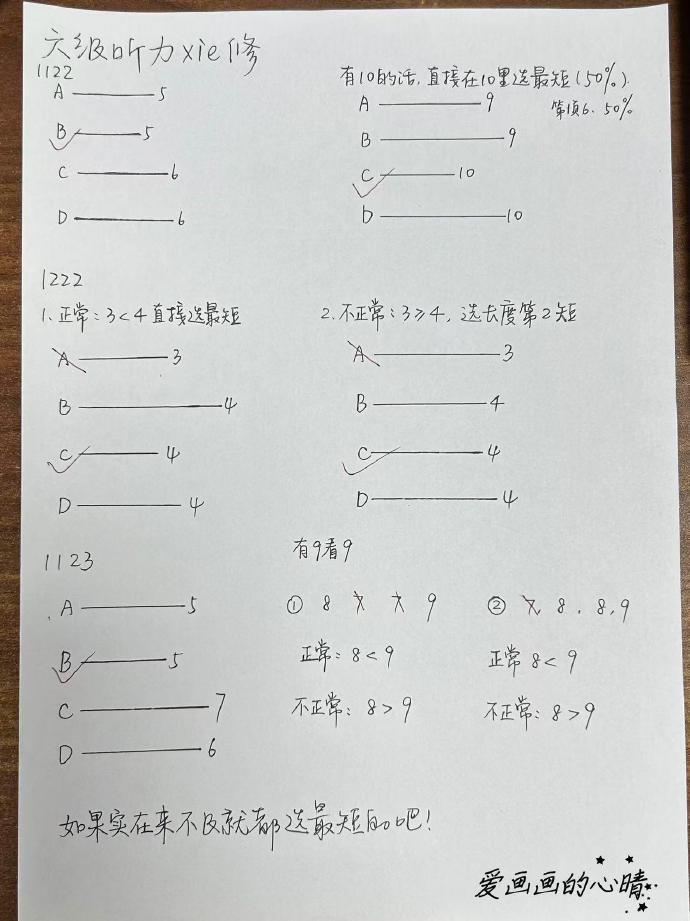 六级听力xie修
1122
A 5
B 5
C 6
D 6
有10的话,直接在10里选最短(50%).
第1页6、50%
A 9
B 9
C 10
D 10
1222
1.正常:3<4直接选最短
A 3
B 4
C 4
D 4
2.不正常:3≥4,选长度第2短
A 3
B 4
C 4
D 4
1123
A 5
B 5
C 7
D 6
有9看9
① 8 9
正常:8<9
不正常:8>9
② 8.8,9
正常8<9
不正常:8>9
如果实在来不及就都选最短的吧!
爱画画的心晴